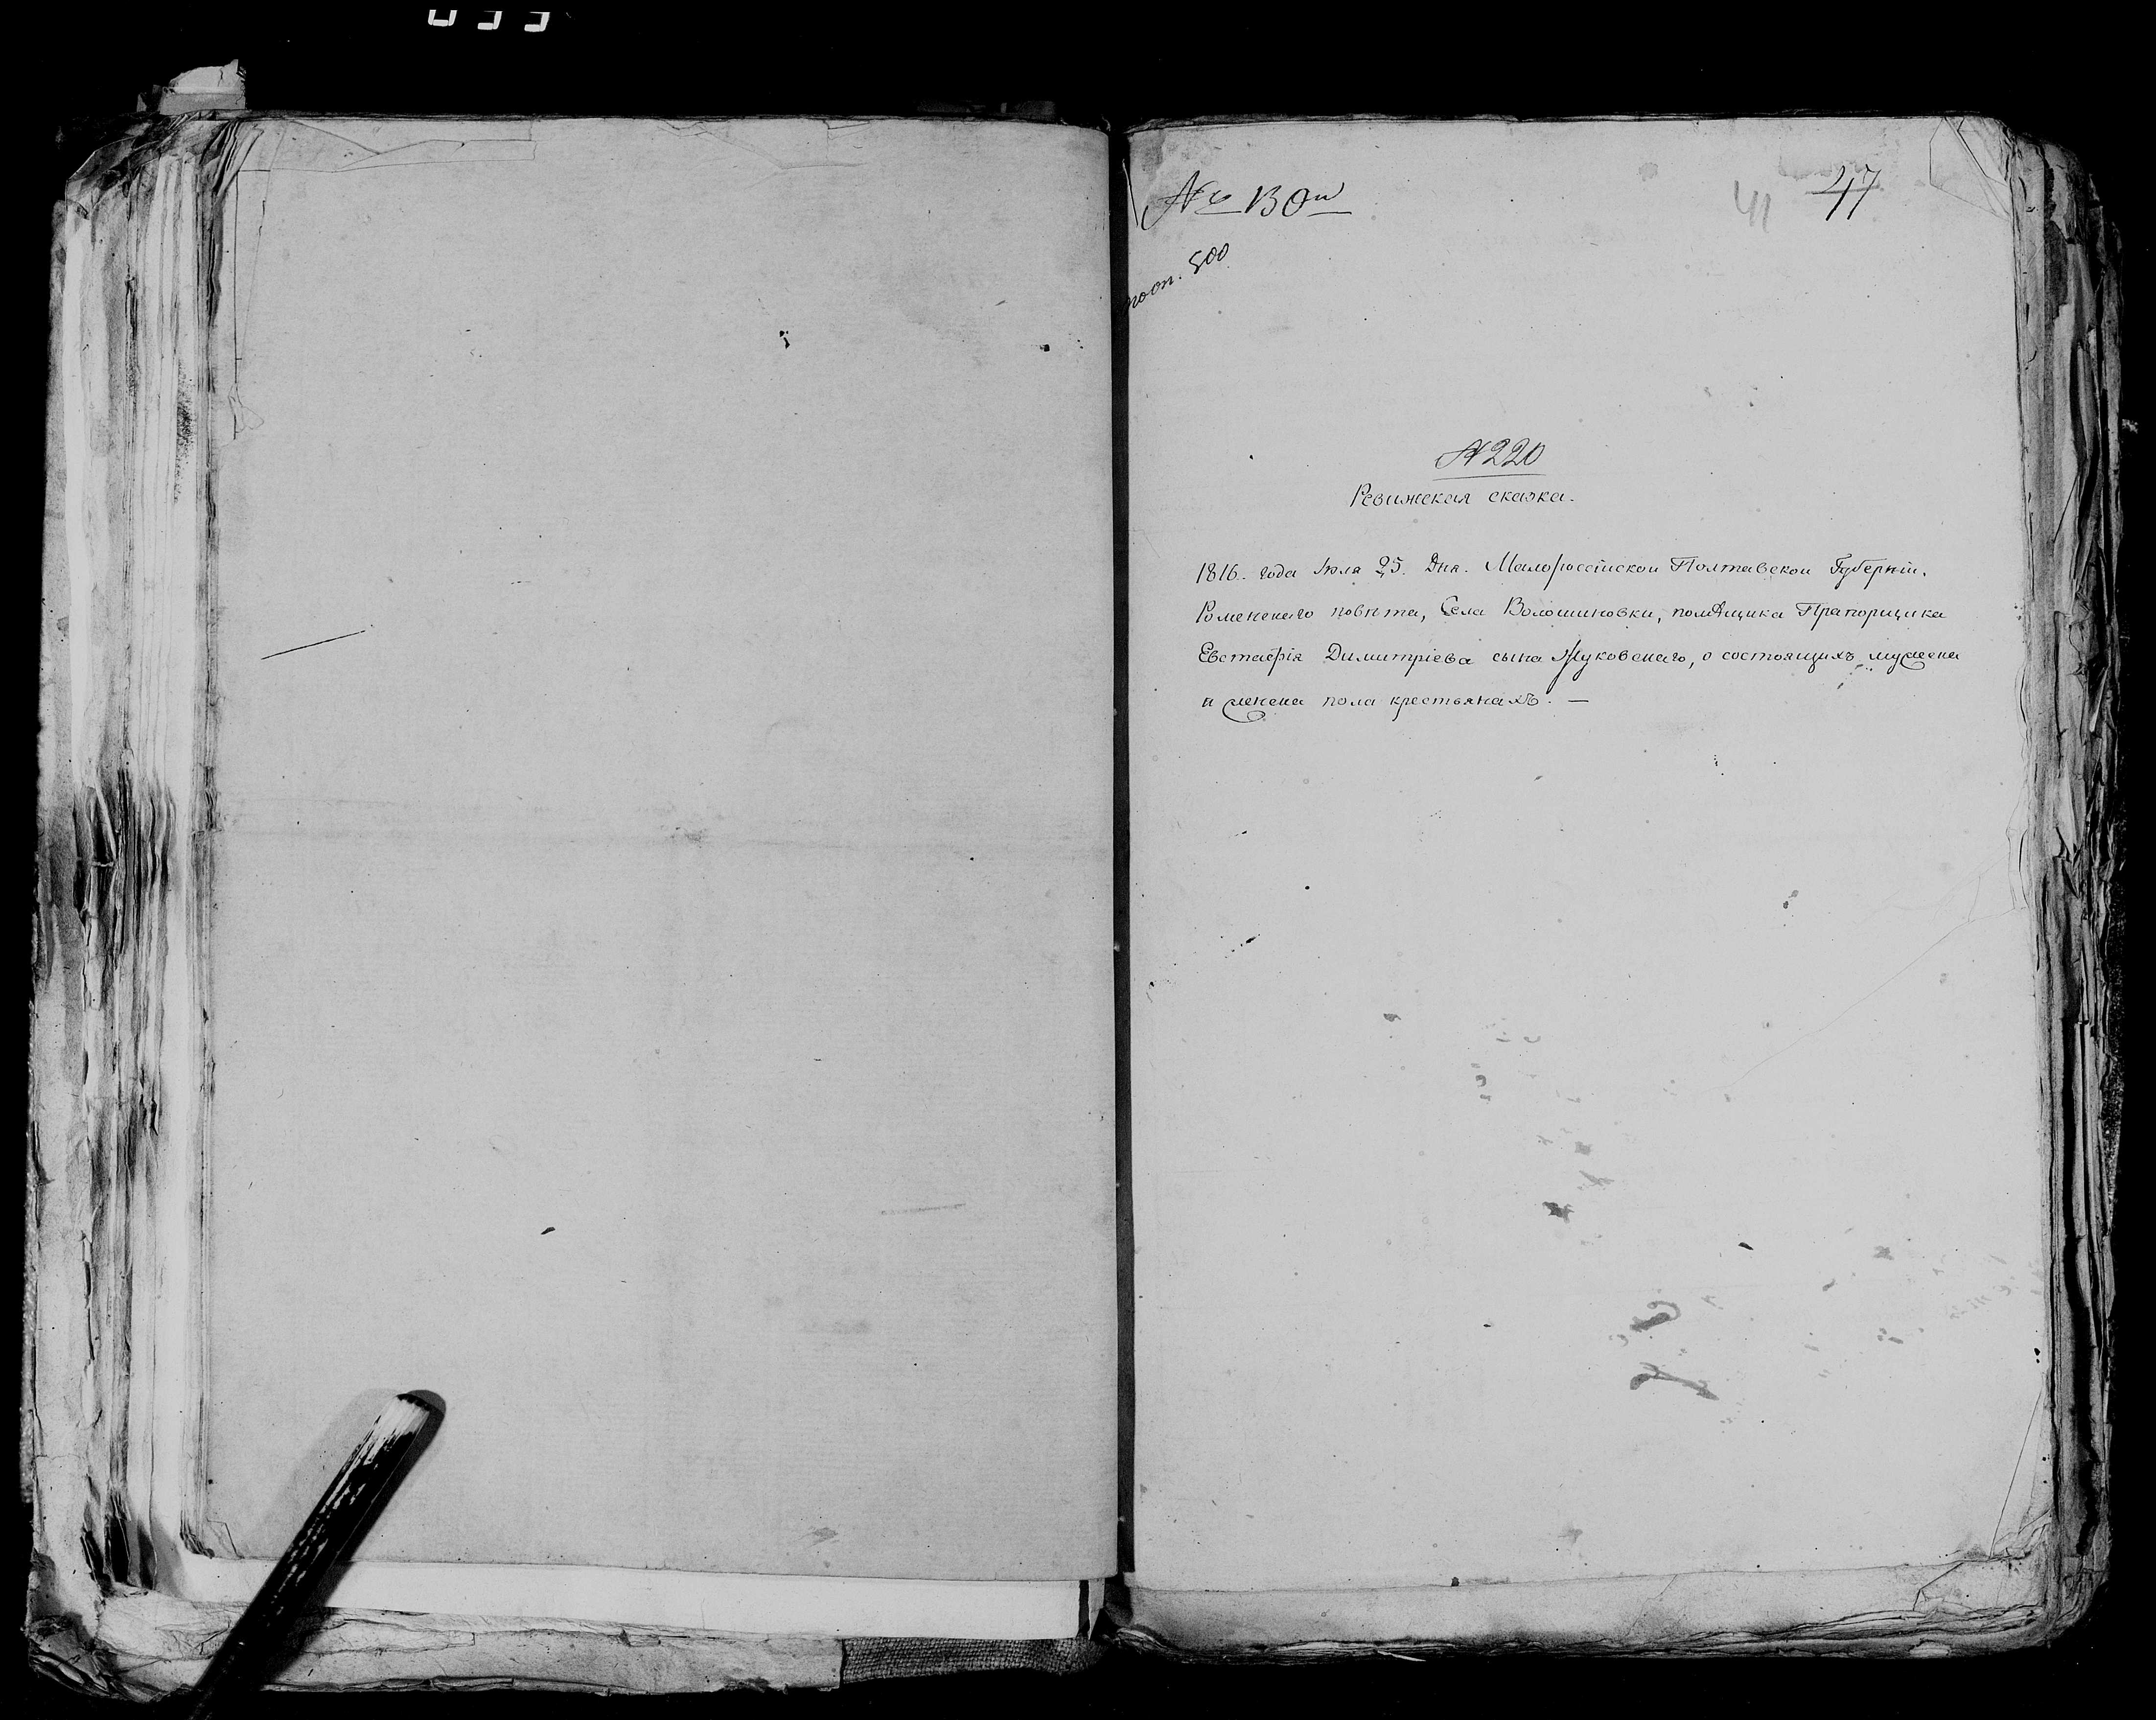 № 130й
41 47
по оп. 500
№ 220
Ревижская сказка.
1816. года Июля 25. Дня. Малороссійскои Полтавскои Губерніи.
Роменскаго повѣта, Села Волошиновки, помѣщика Прапорщика
Евстафія Димитріева сына Жуковскаго, о состоящихъ мужеска
и женска пола крестьянахъ. —